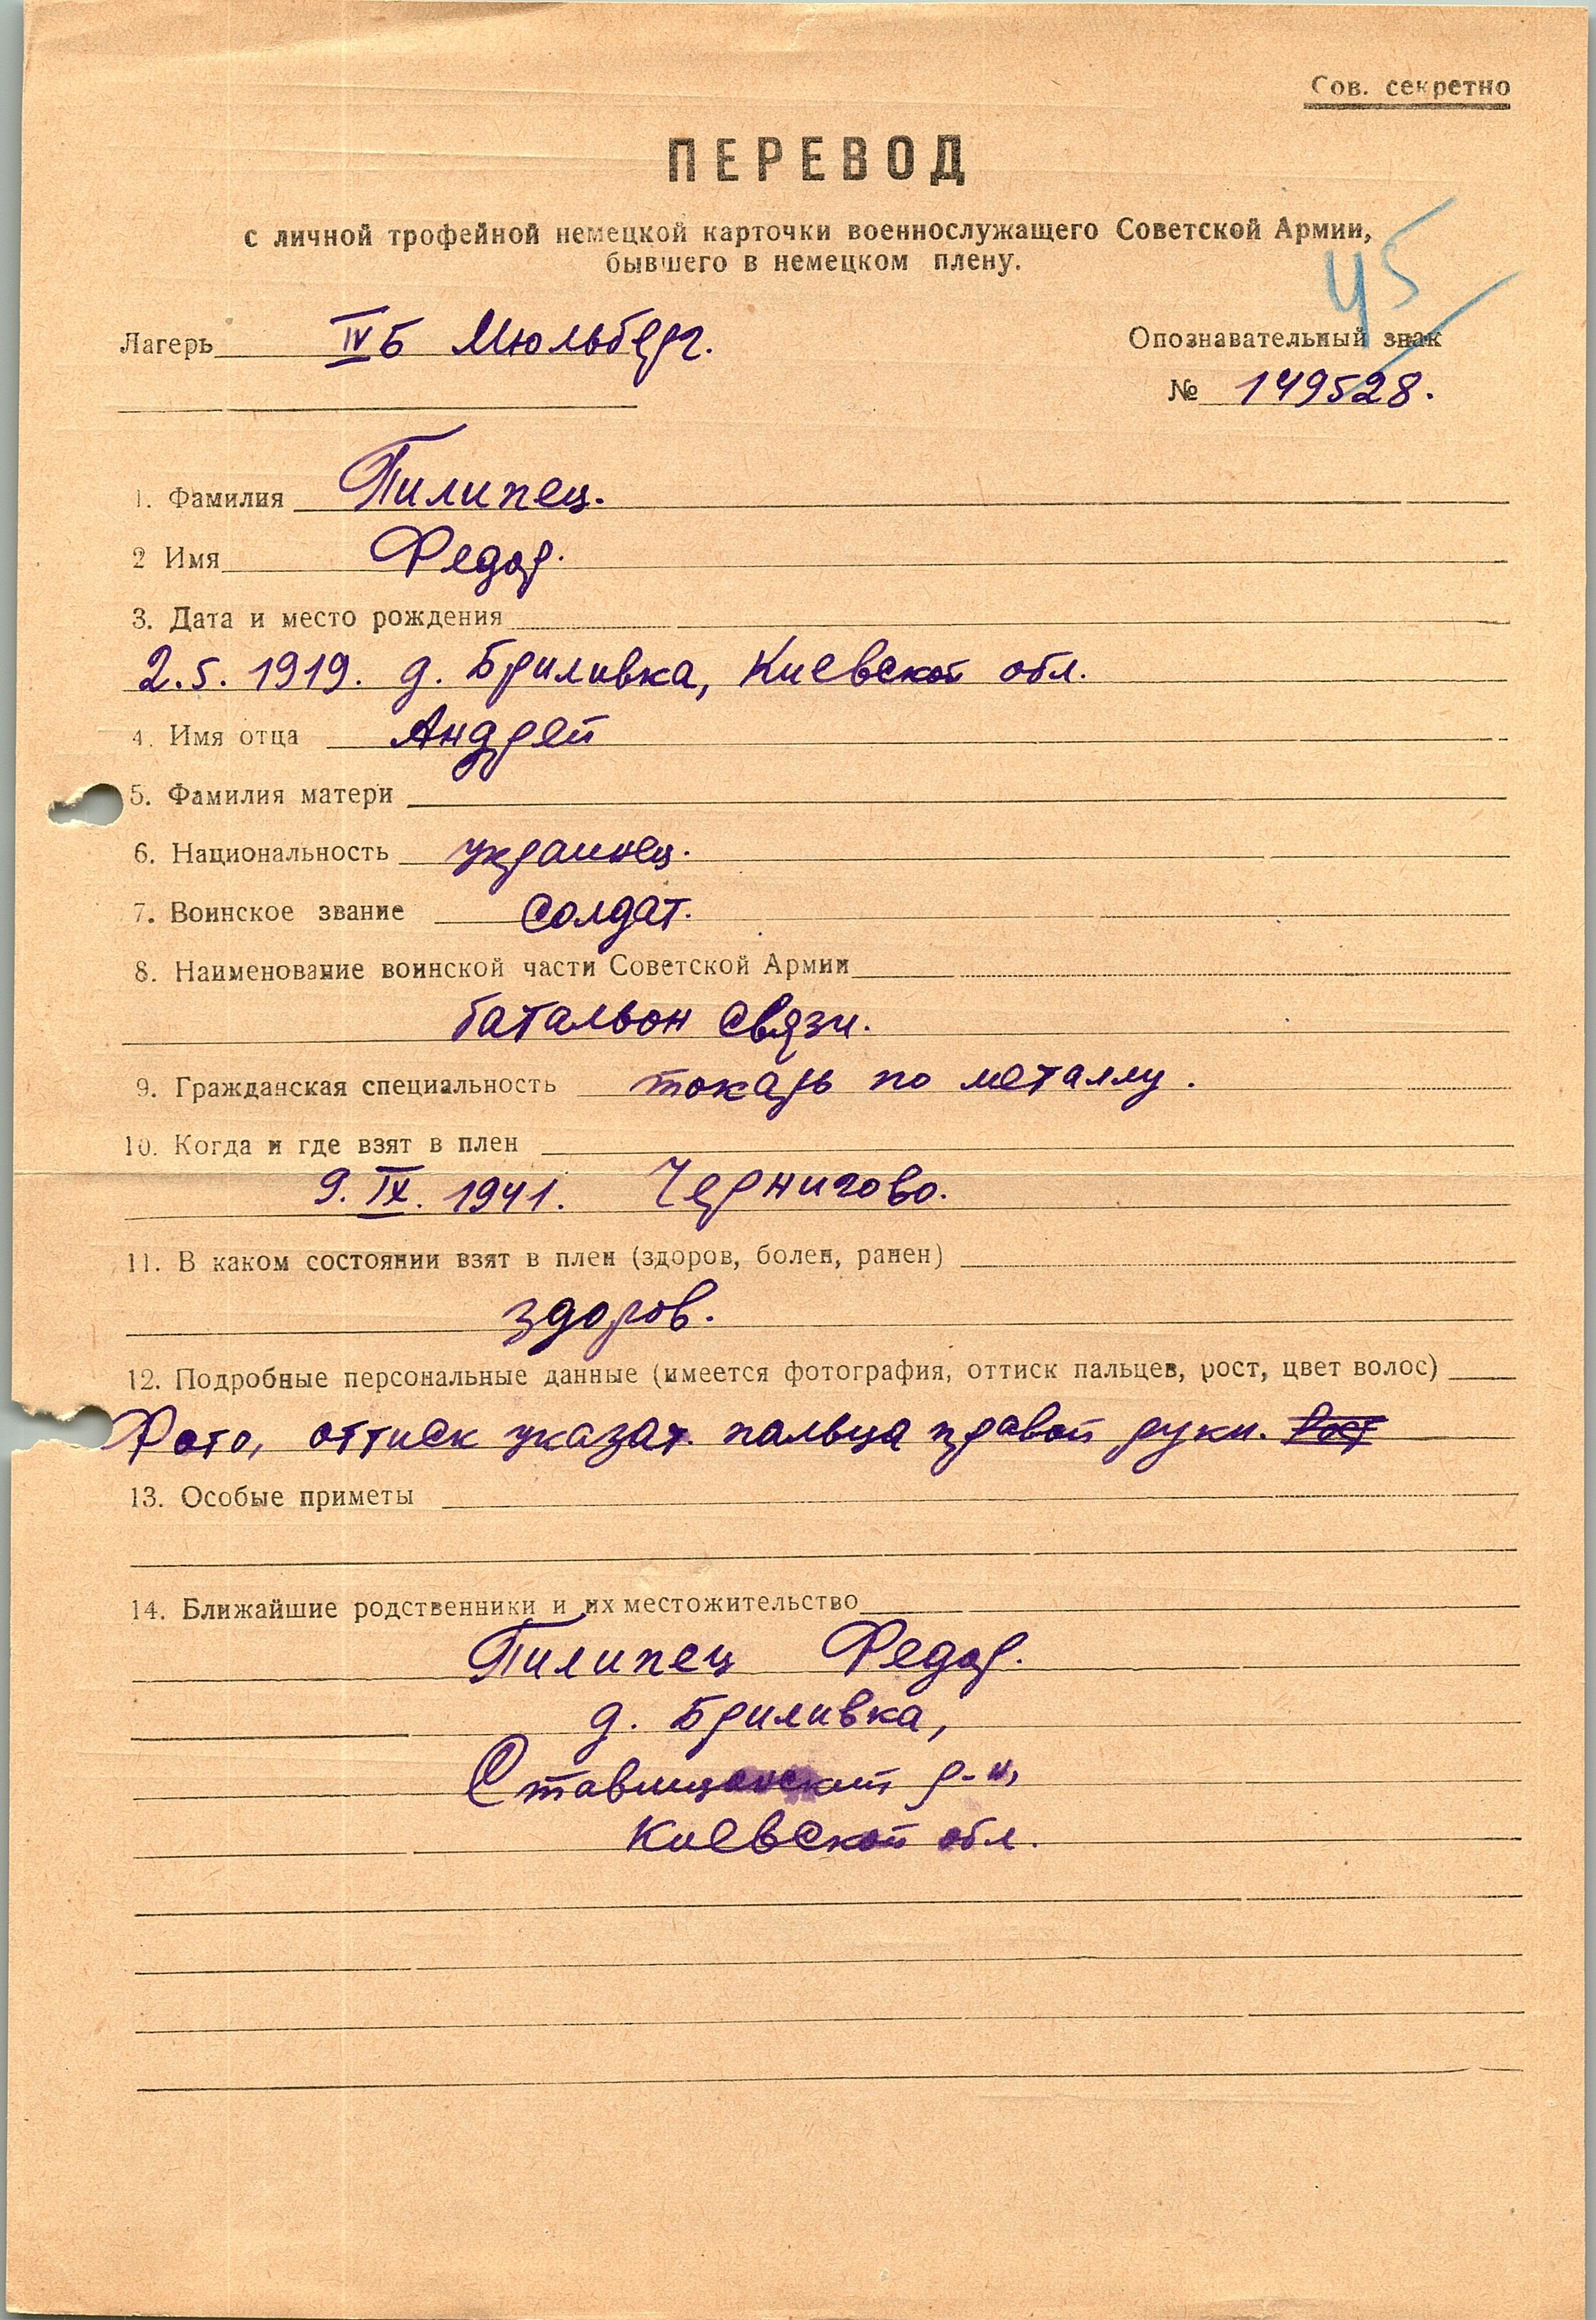 Сов. секретно
ПЕРЕВОД
с личной трофейной немецкой карточки военнослужащего Советской Армии,
бывшего в немецком плену.
45
Лагерь IV Б Мюльберг.
Опознавательный знак
№ 149528.
1. Фамилия Пилипец.
2 Имя Федор.
3. Дата и место рождения
2.5. 1919. д. Бриливка, Киевской обл.
4. Имя отца Андрей
5. Фамилия матери
6. Национальность украинец.
7. Воинское звание солдат.
8. Наименование воинской части Советской Армии
батальон связи.
9. Гражданская специальность токарь по металлу.
10. Когда и где взят в плен
9. IX. 1941. Чернигово.
11. В каком состоянии взят в плен (здоров, болен, ранен)
здоров.
12. Подробные персональные данные (имеется фотография, оттиск пальцев, рост, цвет волос)
Фото, оттиск указат. пальца правой руки. Рост
13. Особые приметы
14. Ближайшие родственники и их местожительство
Пилипец Федор.
д. Бриливка,
р-н,
Киевской обл.